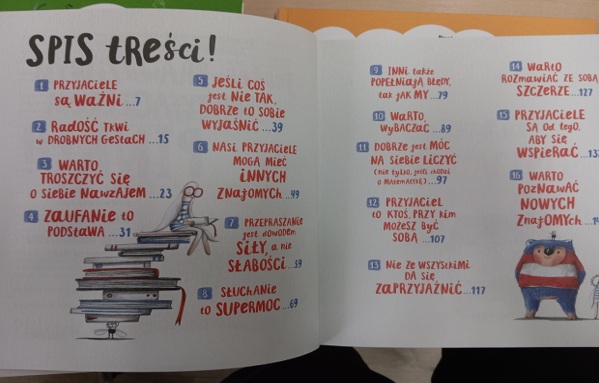 SPIS treści!
1 PRZYJACIELE
są WAŻNI...7
2 RadOŚĆ tkwi
w DROBNYCH GeStaCH...15
3 WARTO
TROSZCZYĆ SIĘ
O SIEBIE NaWZAJEM...23
4 ZAUFANIE to
PODSTAWA...31
5 JEŚLI COŚ
jest NIE TAK,
DOBRZE tO SOBIE
WYJAŚNIĆ...39
6 NASI PRZYJACIELE
MOGĄ MIEĆ
INNYCH
ZNAJOMYCH...49
7 PRZEPRASZANIE
jest DOWODEM
SIŁY, a nie
SŁABOŚCI...59
8 SŁUCHANIE
to SUPERMOC...69
9 INNI także
POPEŁNIAJĄ BŁĘDY,
tak jak MY...79
10 WARTO
WYBACZAĆ...89
11 DOBRZE jest MÓC
NA SIEBIE LICZYĆ
(nie tylko, jeśli chodzi
o MateMatykę)...97
12 PRZYJACIEL
to KTOŚ, PRZY kim
MOŻESZ BYĆ
SOBĄ...107
13 NIE ZE WSZYSTKIMI
DA SIĘ
ZAPRZYJAŹNIĆ...117
14 WARTO
ROZMAWIAĆ ZE SOBĄ
SZCZERZE...127
15 PRZYJACIELE
SĄ Od tego,
ABY SIĘ
WSPIERAĆ...
16 WARTO
POZNAWAĆ
NOWYCH
ZNAJOMYCH...